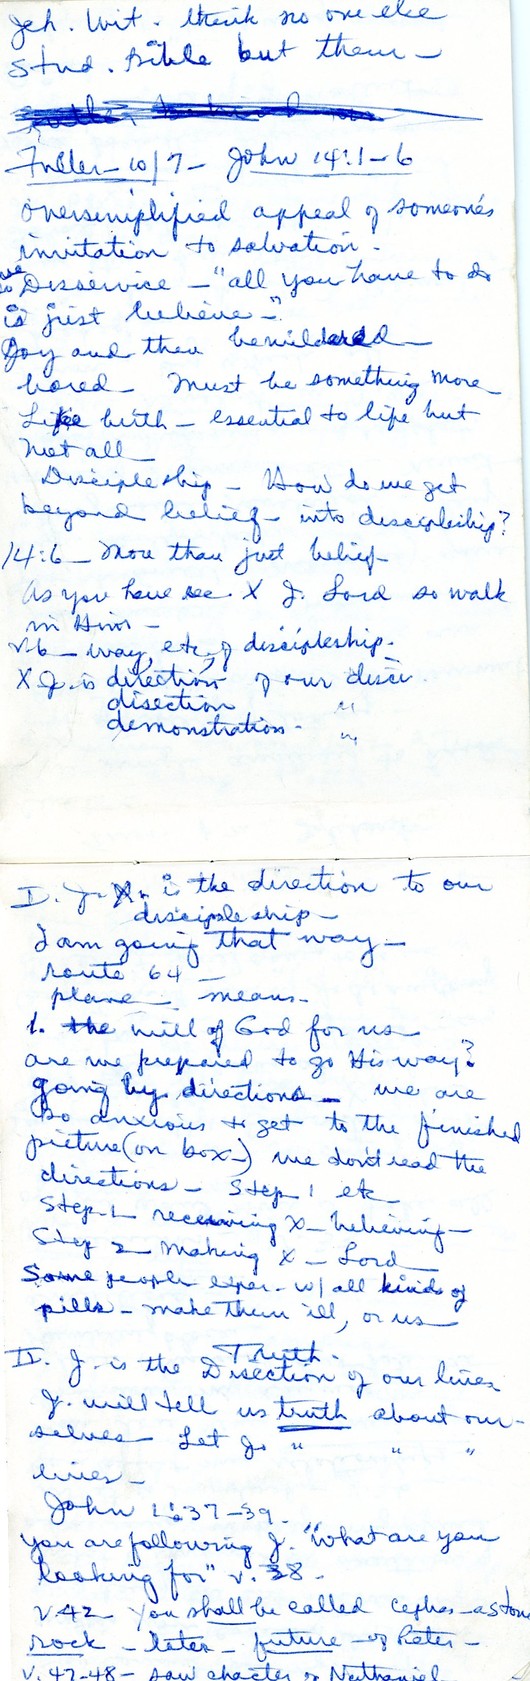 Jeh. Wit. think no one else
Stud. Bible but them -
Fuller - 10/7 - John 14:1-6
oversimplified appeal of someone's
invitation to salvation -
Disservice - "all you have to do
is just believe -"
Joy and then bewildered -
bored - Must be something more
Like birth - essential to life but
not all -
Discipleship - How do we get
beyond belief - into discipleship?
14:6 - More than just belief -
As you have rec. X J. Lord so walk
in Him -
v6 - way, etc, of discipleship.
X J. is direction of our disci.
disection " "
demonstration - " "
I. J. X. is the direction to our
discipleship -
I am going that way -
route 64 -
plane - means -
1. the will of God for us
are we prepared to go His way?
going by directions - we are
so anxious to get to the finished
picture (on box -) we don't read the
directions - Step 1 etc -
Step 1 - receiving X - believing -
Step 2 - Making X - Lord
Some people exper. w/ all kinds of
pills - make them ill, or us
Truth -
II. J. is the Disection of our lives
J. will tell us truth about our-
selves Let Jo " " "
lives -
John 1:37-39 -
you are following J. "What are you
looking for" v. 38 -
v. 42 - you shall be called Cephas - a stone
rock - later - future - of Peter -
v. 47-48 - saw chacter of Nathaniel